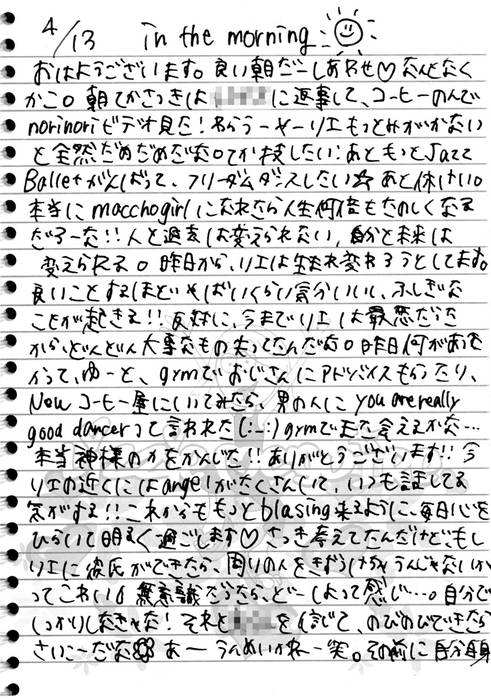 4/13 in the morning
おはようございます。良い朝だーしあわせ♡なんとなく
かこ。朝でかさっきは に返事して、コーヒーのんで
norinoriビデオ見た!わらうーやーリエもっとみがかない
と全然だめだめだな。てか技したい!あともっとJazz
Balletがんばって、フリーダムダンスしたい☆あと体けい。
本当にmacchogirlになれたら人生何倍もたのしくなる
だろーな!!人と過去は変えられない,自分と未来は
変えられる。昨日から、リエは生まれ変わろうとしてます。
良いことするほどいやばいくらい気分いい、ふしぎな
ことが起きる!!反対に、今までリエは最悪だった
から、どんどん大事なもの失ってたんだな。昨日何があった
かって、ゆーと、gymでおじさんにアドバイスもらったり、
Newコーヒー屋にいてみたら、男の人にyou are really
good dancerって言われた(:_:)gymでまた会えるかな…
本当神様の力をかんじた!!ありがとうございます!!今
リエの近くにはangelがたくさんいて、いつも話してる
気がする!!これからももっとblasing来るように、毎日心を
ひらいて明るく過ごします♡さっき考えてたんだけどもし
リエに彼氏ができたら、周りの人をきずつけちゃうんじゃないか
ってこわい。無意識だろうなら、どーしよって感じ…。自分で
しっかりしなきゃな!それと を信じて、のびのびできたら
さいこーだな あーうんめいかれー笑。その前に自分自身